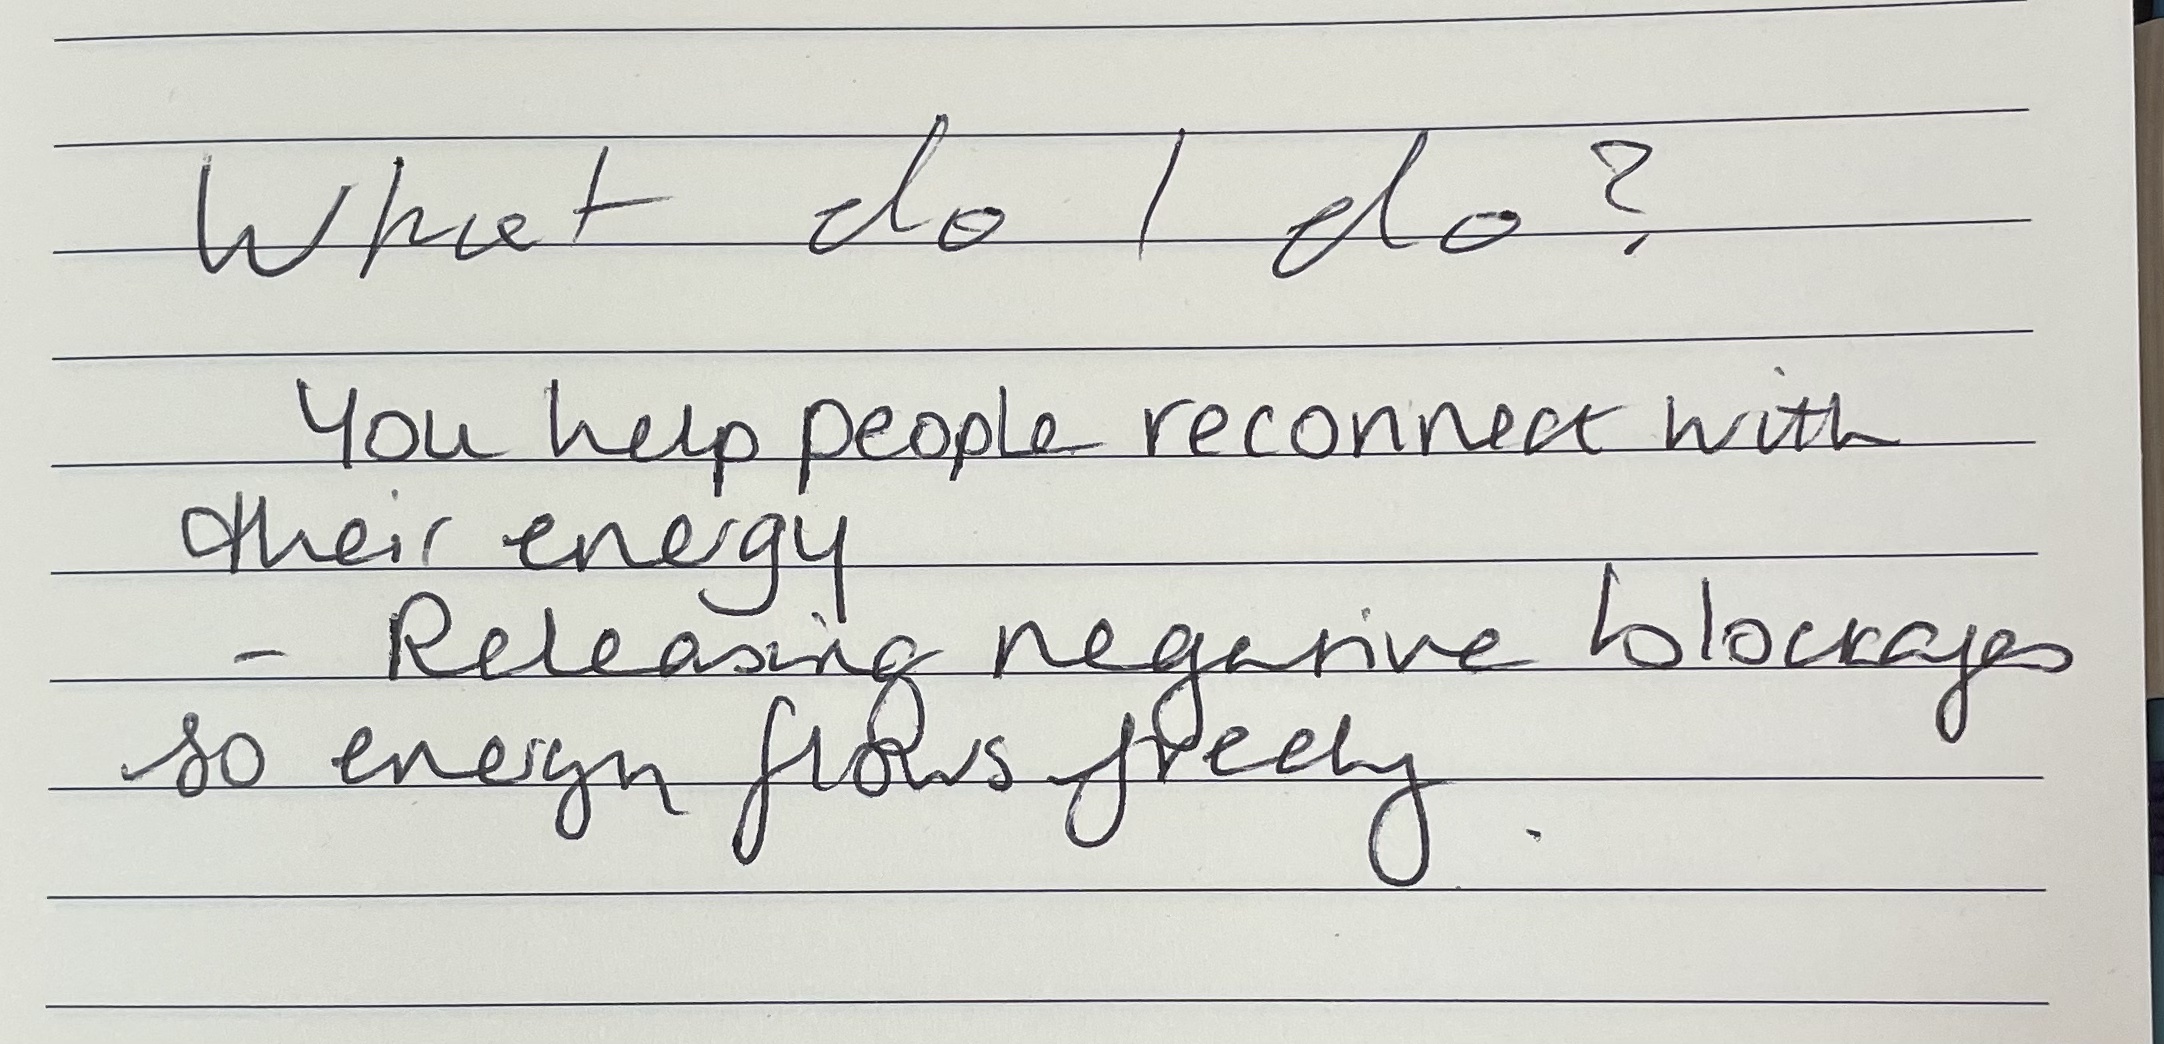 What do I do?
You help people reconnect with
their energy
- Releasing negative blockages
so energy flows freely.